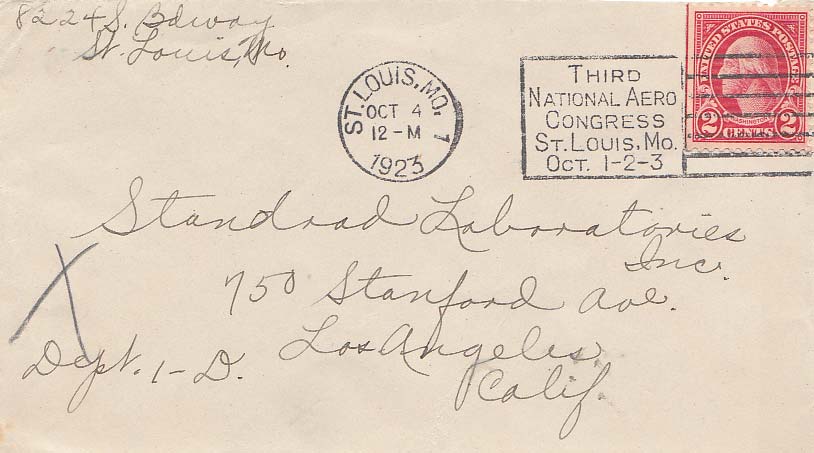 8224 S. Bdway
St. Louis, Mo.
ST. LOUIS, MO. 1
OCT 4
12-M
1923
THIRD
NATIONAL AERO
CONGRESS
ST. LOUIS, MO.
OCT. 1-2-3
UNITED STATES POSTAGE
WASHINGTON
2 CENTS 2
Standrad Laboratories
Inc.
750 Stanford Ave.
Los Angeles,
Calif.
Dept. 1-D.